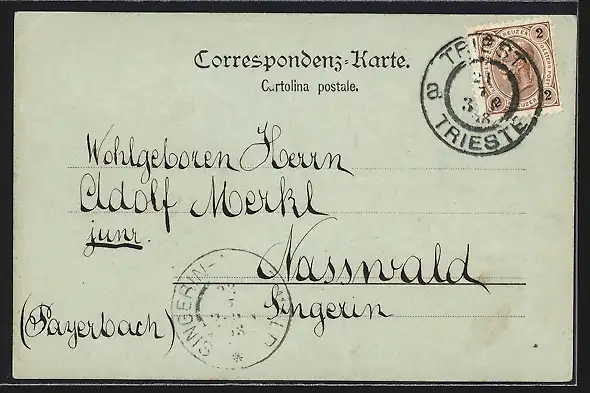 Correspondenz-Karte.
Cartolina postale.
2 KREUZER 2
TRIEST
TRIESTE
8
Wohlgeboren Herrn
Adolf Merkl
junr.
Nasswald
Singerin
(Payerbach)
SINGERIN-
WALD